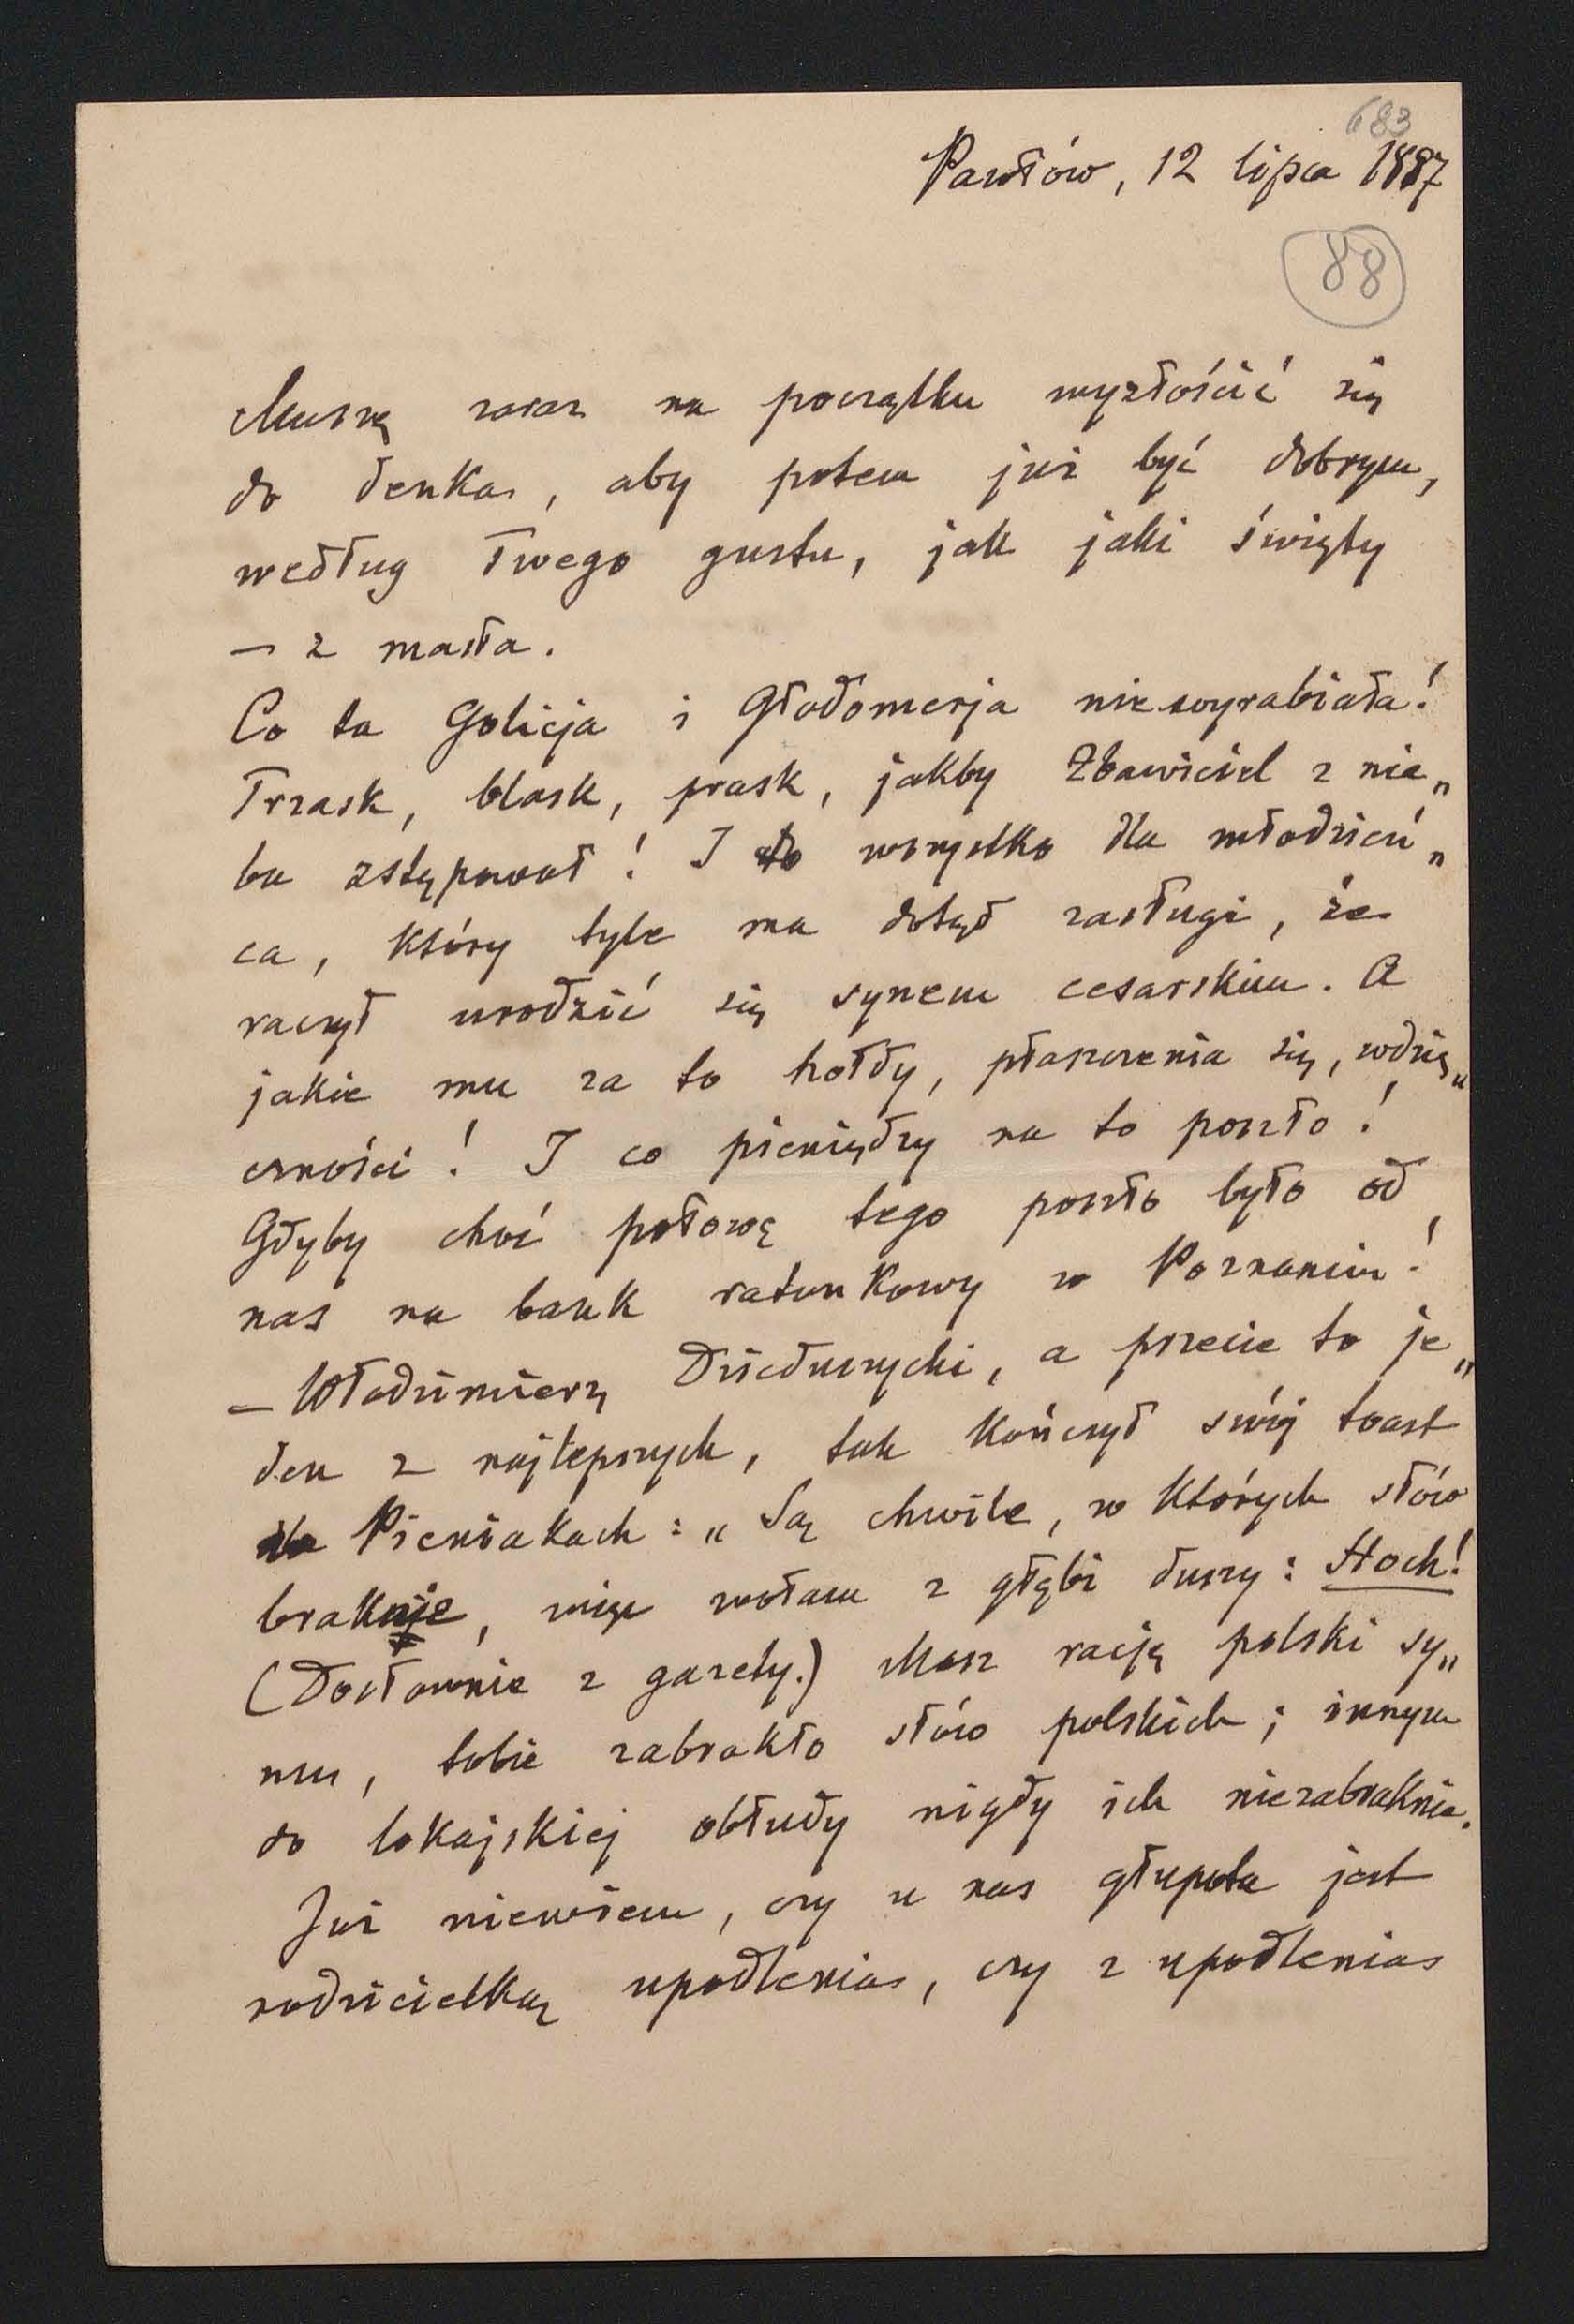 683
Pawłów, 12 lipca 1887
88
Muszę zaraz na początku wyzłościć się
do denka, aby potem już być dobrym,
według Twego gustu, jak jaki święty
— z masła.
Co ta Golicja i Głodomerja nie wyrabiała!
Trzask, blask, prask, jakby Zbawiciel z nie„
ba zstępował! I to wszystko dla młodzień„
ca, który tyle ma dotąd zasługi, że
raczył urodzić się synem cesarskim. A
jakie mu za to hołdy, płaszczenia się, wdzię„
czności! I co pieniędzy na to poszło!
Gdyby choć połowę tego poszło było od
nas na bank ratunkowy w Poznaniu!
— Włodzimierz Dzieduszycki, a przecie to je„
den z najlepszych, tak kończył swój toast
Pieniakach: „Są chwile, w których słów
braknie, więc wołam z głębi duszy: Hoch!
(Dosłownie z gazety.) Masz rację polski sy„
nu, tobie zabrakło słów polskich; innym
do lokajskiej obłudy nigdy ich niezabraknie.
Już niewiem, czy u nas głupota jest
rodzicielką upodlenia, czy z upodlenia